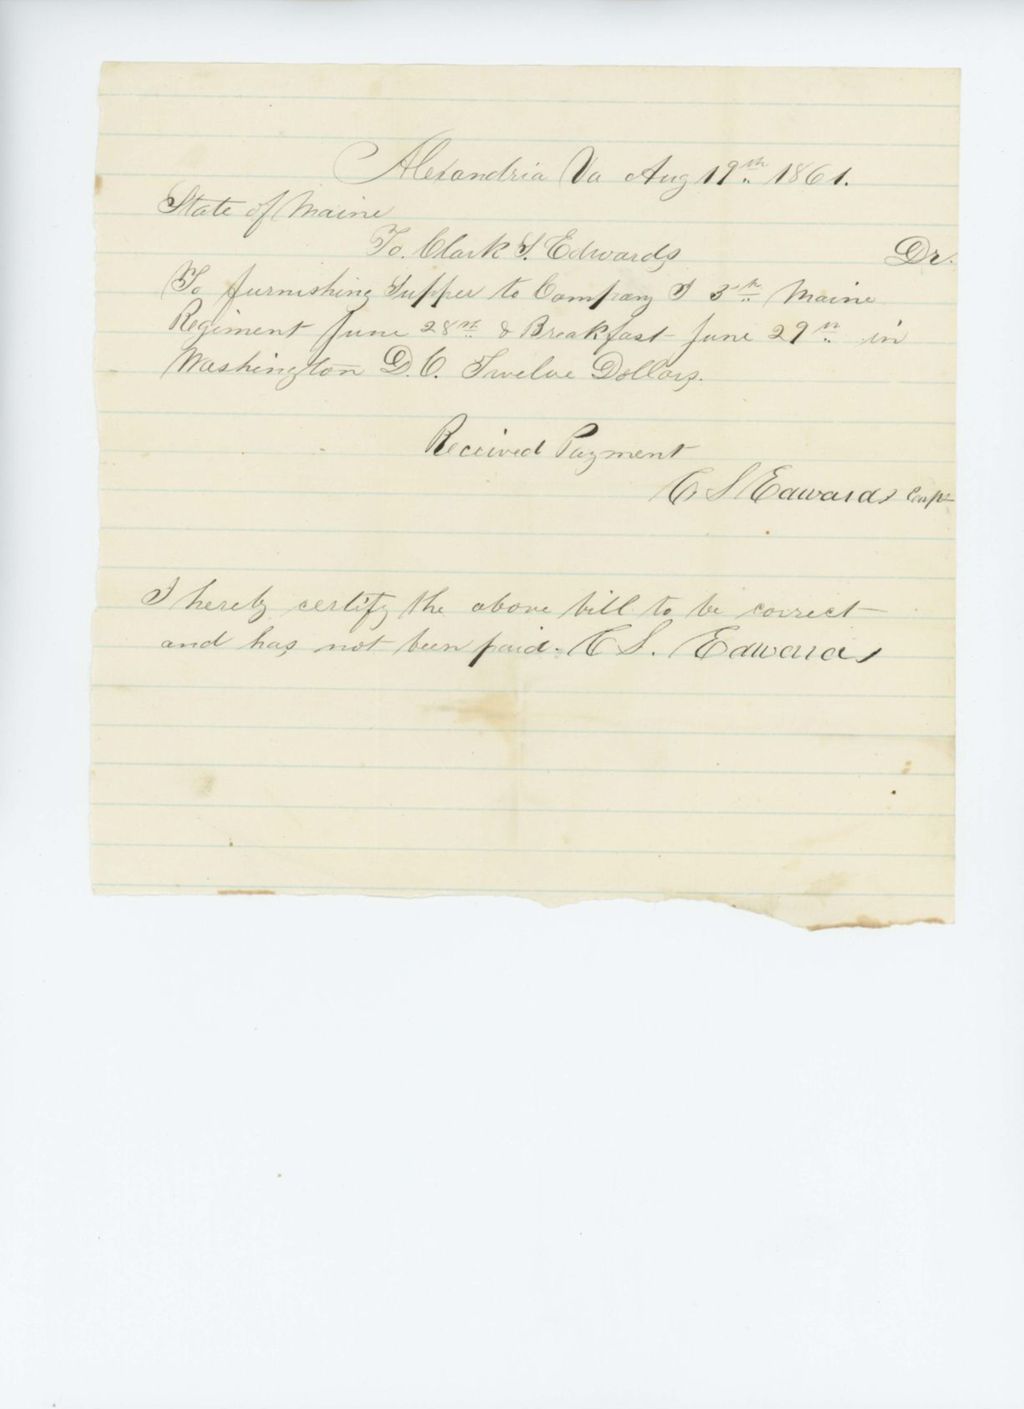 Alexandria Va Aug 19th 1861.
State of Maine
To. Clark S. Edwards Dr.
To furnishing Supper to Company I 5th Maine
Regiment June 28th & Breakfast June 29th in
Washington D.C. Twelve Dollars.
Received Payment
C S Edwards Capt
I hereby certify the above bill to be correct
and has not been paid. C S. Edwards